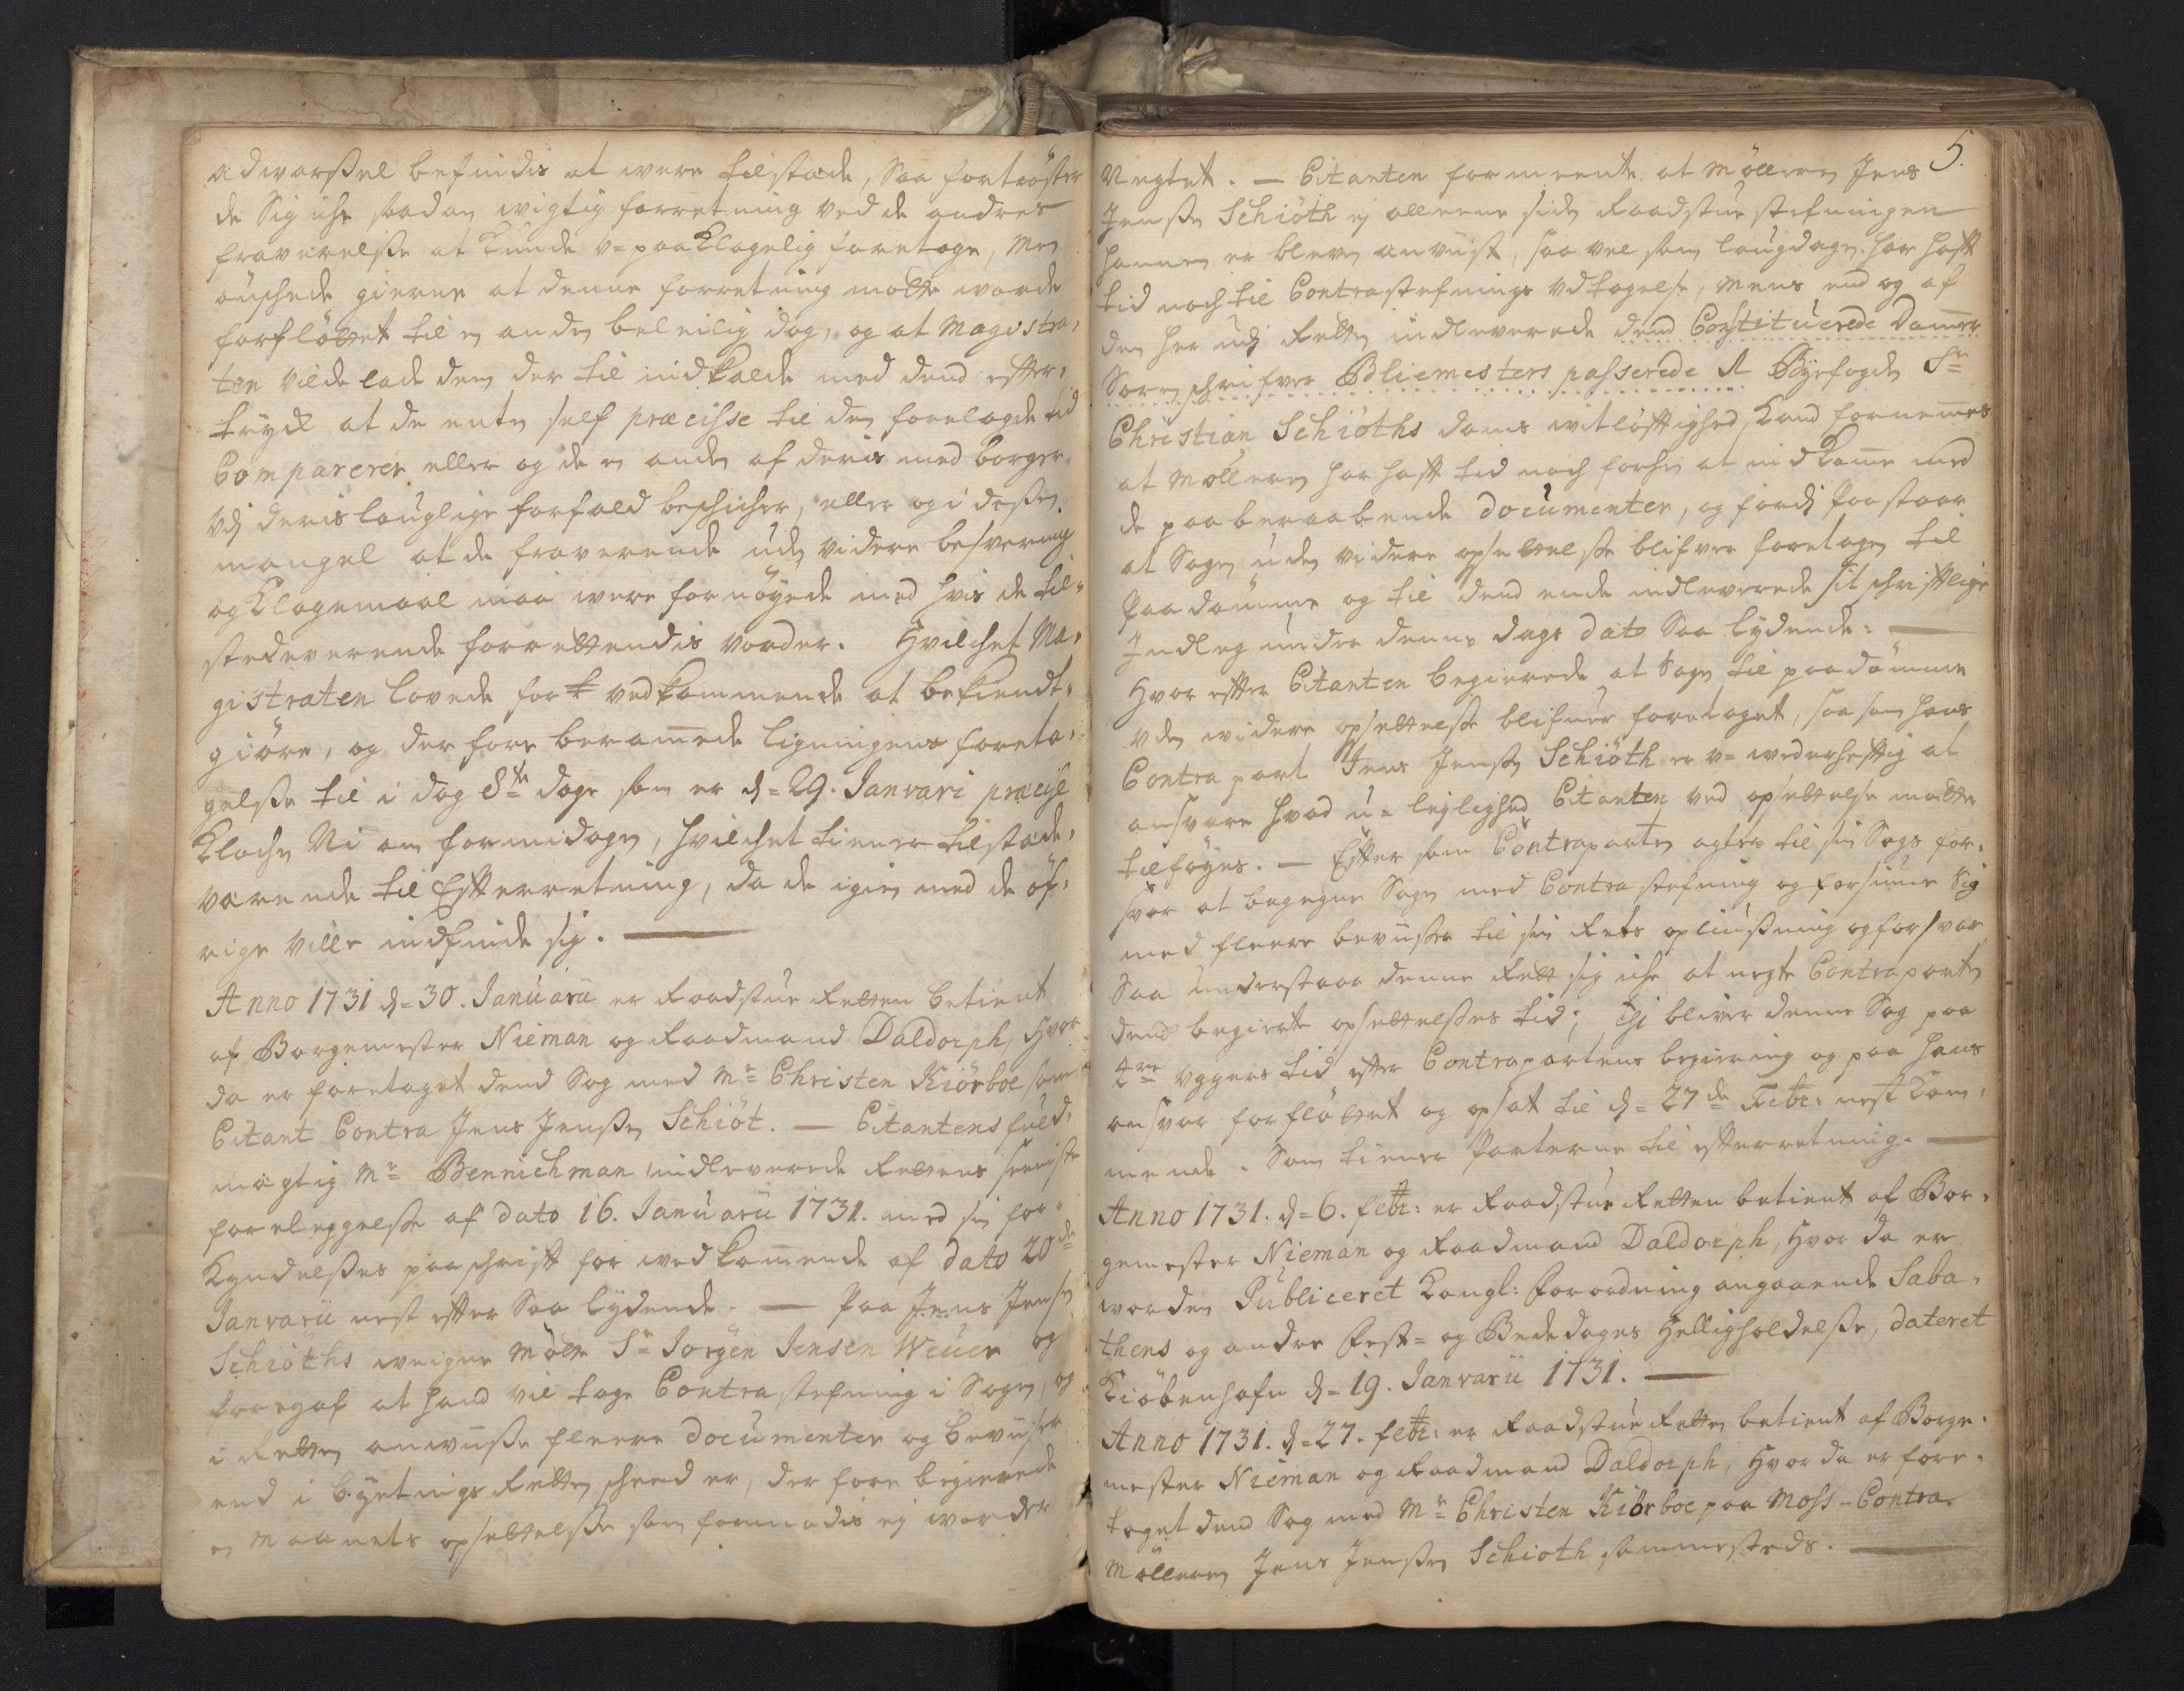 adwarßel befindis at were tilstæde, saa fortröster
de sig iche saadan wigtig forretning ved de andres
fraverelße at kunde u-paaklagelig foretage, men
önschede gierne at denne forretning motte worde
forfløttet til en anden beleilig dag, og at Magistra,
ten vilde lade dem der til indkalde med dend efter,
tryck at de enten self præcisse til den forelagde tid
Comparerer eller og de en anden af deris med borger
udj deris lauglige forfald beschicher, eller og i deßen
mangel at de fraverende uden videre besvering
og klagemaal maa were fornöyede med hvis de til-
stedeverende forrettendis vorder. Hvilchet Ma,
gistraten lovede for vedkommende at bekiendt,
giöre, og der fore beramede ligningens foreta,
gelße til i dag 8te dage som er d=29. Janvari præcise
klochen Ni om formidagen, hvilchet tiener tilstæde,
værende til Efterretning, da de igien med de öf,
rige ville indfinde sig. —
Anno 1731 d=30. Januarii er Raadstue Retten betient
af Borgemester Nieman og Raadmand Daldorph, Hvor
da er foretaget dend Sag med Mr Christen Kiörboe som
Citant Contra Jens Jenßen Schiöt. — Citantens fuld,
mægtig Mr Bennichman indleverede Rettens seeniste
foreleggelße af dato 16. Januarii 1731. med sin for-
kyndelßes paaschrift for wedkommende af dato 20de
Janvarii nest efter saa lydende. — Paa Jens Jensen
Schiöths weigne möder Sr Jörgen Jensen Weüer og
foregaf at hand vil tage Contrastefning i Sagen, og
i Retten anwiiße fleere documenter og Beviiser
end i Byetings Retten scheed er, der fore begierede
en Maanets opsettelße som formodis ej worder
5.
Negtet. — Citanten formeente at Mölleren Jens
Jenßen Schiöth ej alleene siden Raadstue stefningen
hannem er bleven anviist, saa vel som laugdagen har haft
tid noch til Contrastefnings udtagelse, mens end og af
den her udj Retten indleverede dend Constituerede Dommer
Sorenschrifver Bliemesters passerede & Byefogden Sr
Christian Schiöths doms witlöftighed, kand fornemmes
at Mölleren har haft tid noch forhen at indkomme med
de paaberaabende documenter, og fordj paastaar
at Sagen uden videre opsettelße blifver foretagen til
Paadömme og til dend ende indleverede sit schriftlige
Indleg under denne dags dato Saa lydende: —
Hvor efter Citanten begierede at Sagen til paadömme
uden widere opsettelße blifver foretaget, saa som hans
Contrapart Jens Jenßen Schiöth er u=wederheftig at
ansvare hvad u=leylighed Citanten ved opsettelse motte
tilföyes. — Efter som Contraparten agter til sin Sags for,
svar at begegne Sagen med Contra stefning og forsiune sig
med fleere beviißer til sin Rets opliußning og forsvar
Saa understaaer denne Rett sig iche at negte Contraparten
dend begierte opsettelßes tid; Thj bliver denne Sag paa
4re Uggers tid efter Contrapartens begiering og paa hans
ansvar forfløttet og opsat til d=27de Febr: nest kom,
mende. Som tiener Parterne til efterretning. —
Anno 1731. d=6. febr: er Raadstue Retten betient af Bor,
gemester Nieman og Raadmand Daldorph, Hvor da er
worden Publiceret Kongl: Forordning angaaende Saba,
thens og andre Fest= og Bededages Helligholdelße, dateret
Kiöbenhafn d=19. Janvarii 1731. —
Anno 1731. d=27. febr: er Raadstue Retten betient af Borge,
mester Nieman og Raadmand Daldorph, Hvor da er fore,
taget dend Sag med Mr Christen Kiörboe paa Moss - Contra
Mölleren Jens Jenßen Schiöth sammesteds. —